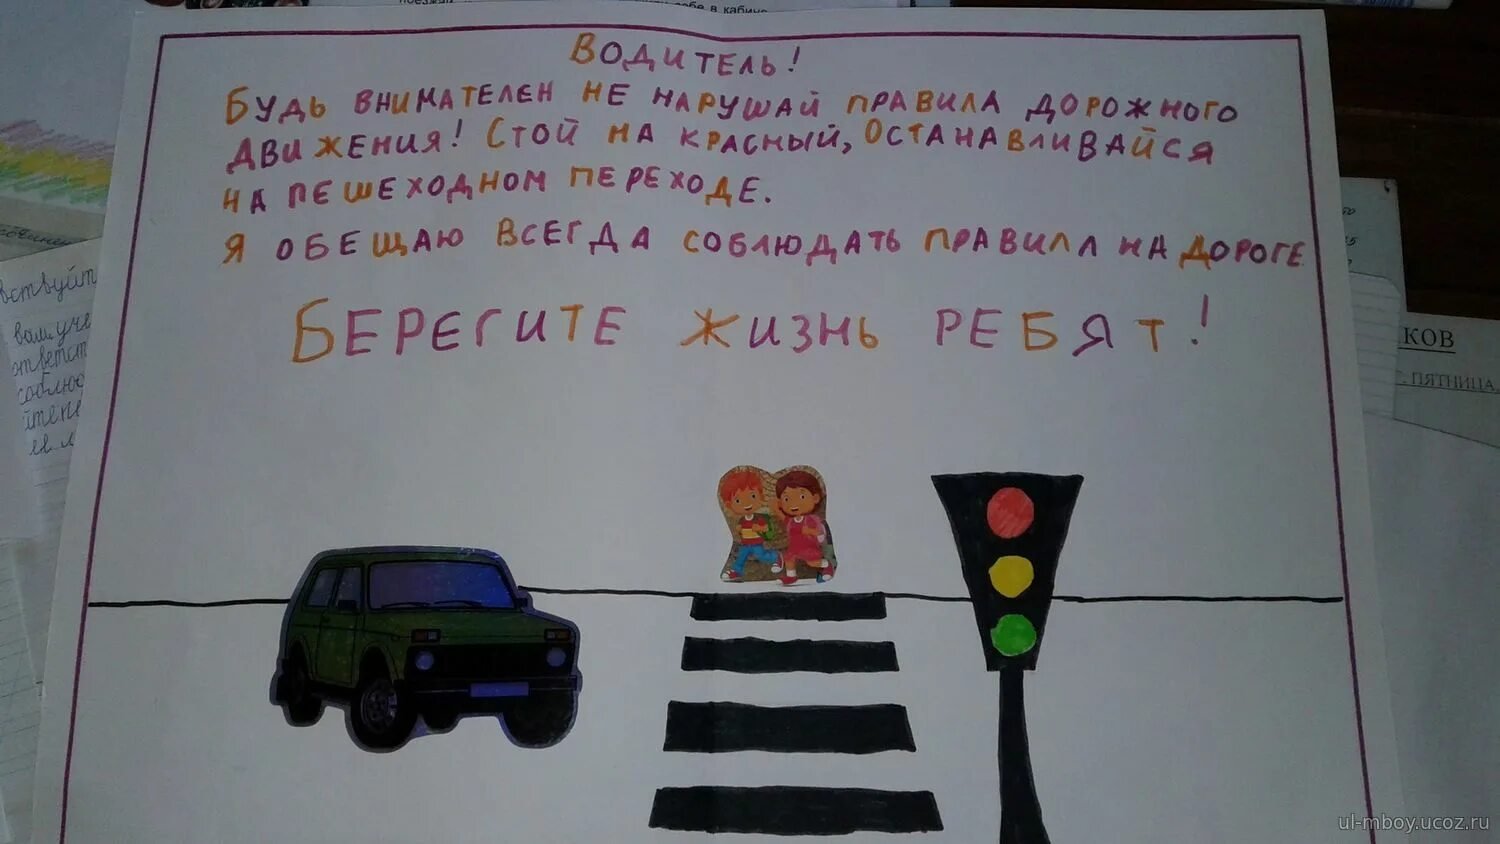 себе в кабине
Водитель!
Будь внимателен не нарушай правила дорожного
движения! Стой на красный, Останавливайся
на пешеходном переходе.
Я обещаю всегда соблюдать правила на дороге
Берегите жизнь ребят!
вствуйт
ответст
соблюд
КОВ
ПЯТНИЦА,
ul-mboy.ucoz.ru